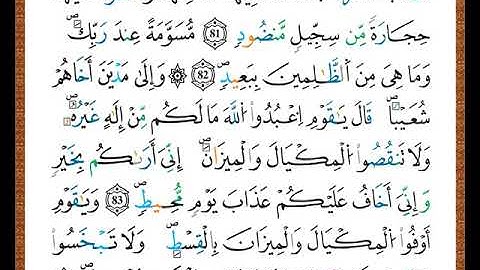 حِجَارَةً مِّن سِجِّيلٍ مَّنضُودٍ ۝81 مُّسَوَّمَةً عِندَ رَبِّكَ
وَمَا هِىَ مِنَ ٱلظَّٰلِمِينَ بِبَعِيدٍ ۝82 ۞ وَإِلَىٰ مَدْيَنَ أَخَاهُمْ
شُعَيْبًا قَالَ يَٰقَوْمِ ٱعْبُدُوا۟ ٱللَّهَ مَا لَكُم مِّنْ إِلَٰهٍ غَيْرُهُۥ
وَلَا تَنقُصُوا۟ ٱلْمِكْيَالَ وَٱلْمِيزَانَ إِنِّىٓ أَرَىٰكُم بِخَيْرٍ
وَإِنِّىٓ أَخَافُ عَلَيْكُمْ عَذَابَ يَوْمٍ مُّحِيطٍ ۝83 وَيَٰقَوْمِ
أَوْفُوا۟ ٱلْمِكْيَالَ وَٱلْمِيزَانَ بِٱلْقِسْطِ وَلَا تَبْخَسُوا۟